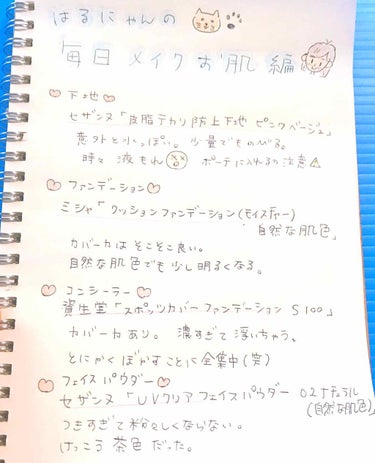 はるにゃんの
毎日メイクお肌編
下地
セザンヌ「皮脂テカリ防止下地 ピンクベージュ」
意外と水っぽい。少量でものびる。
時々液もれ ポーチに入れるの注意
ファンデーション
ミシャ「クッションファンデーション(モイスチャー)
自然な肌色」
カバー力はそこそこ良い。
自然な肌色でも少し明るくなる。
コンシーラー
資生堂「スポッツカバーファンデーション S100」
カバー力あり。濃すぎて浮いちゃう。
とにかくぼかすことに全集中(笑)
フェイスパウダー
セザンヌ「UVクリアフェイスパウダー 02ナチュラル
(自然な肌色)
つきすぎて粉々しくならない。
けっこう茶色だった。